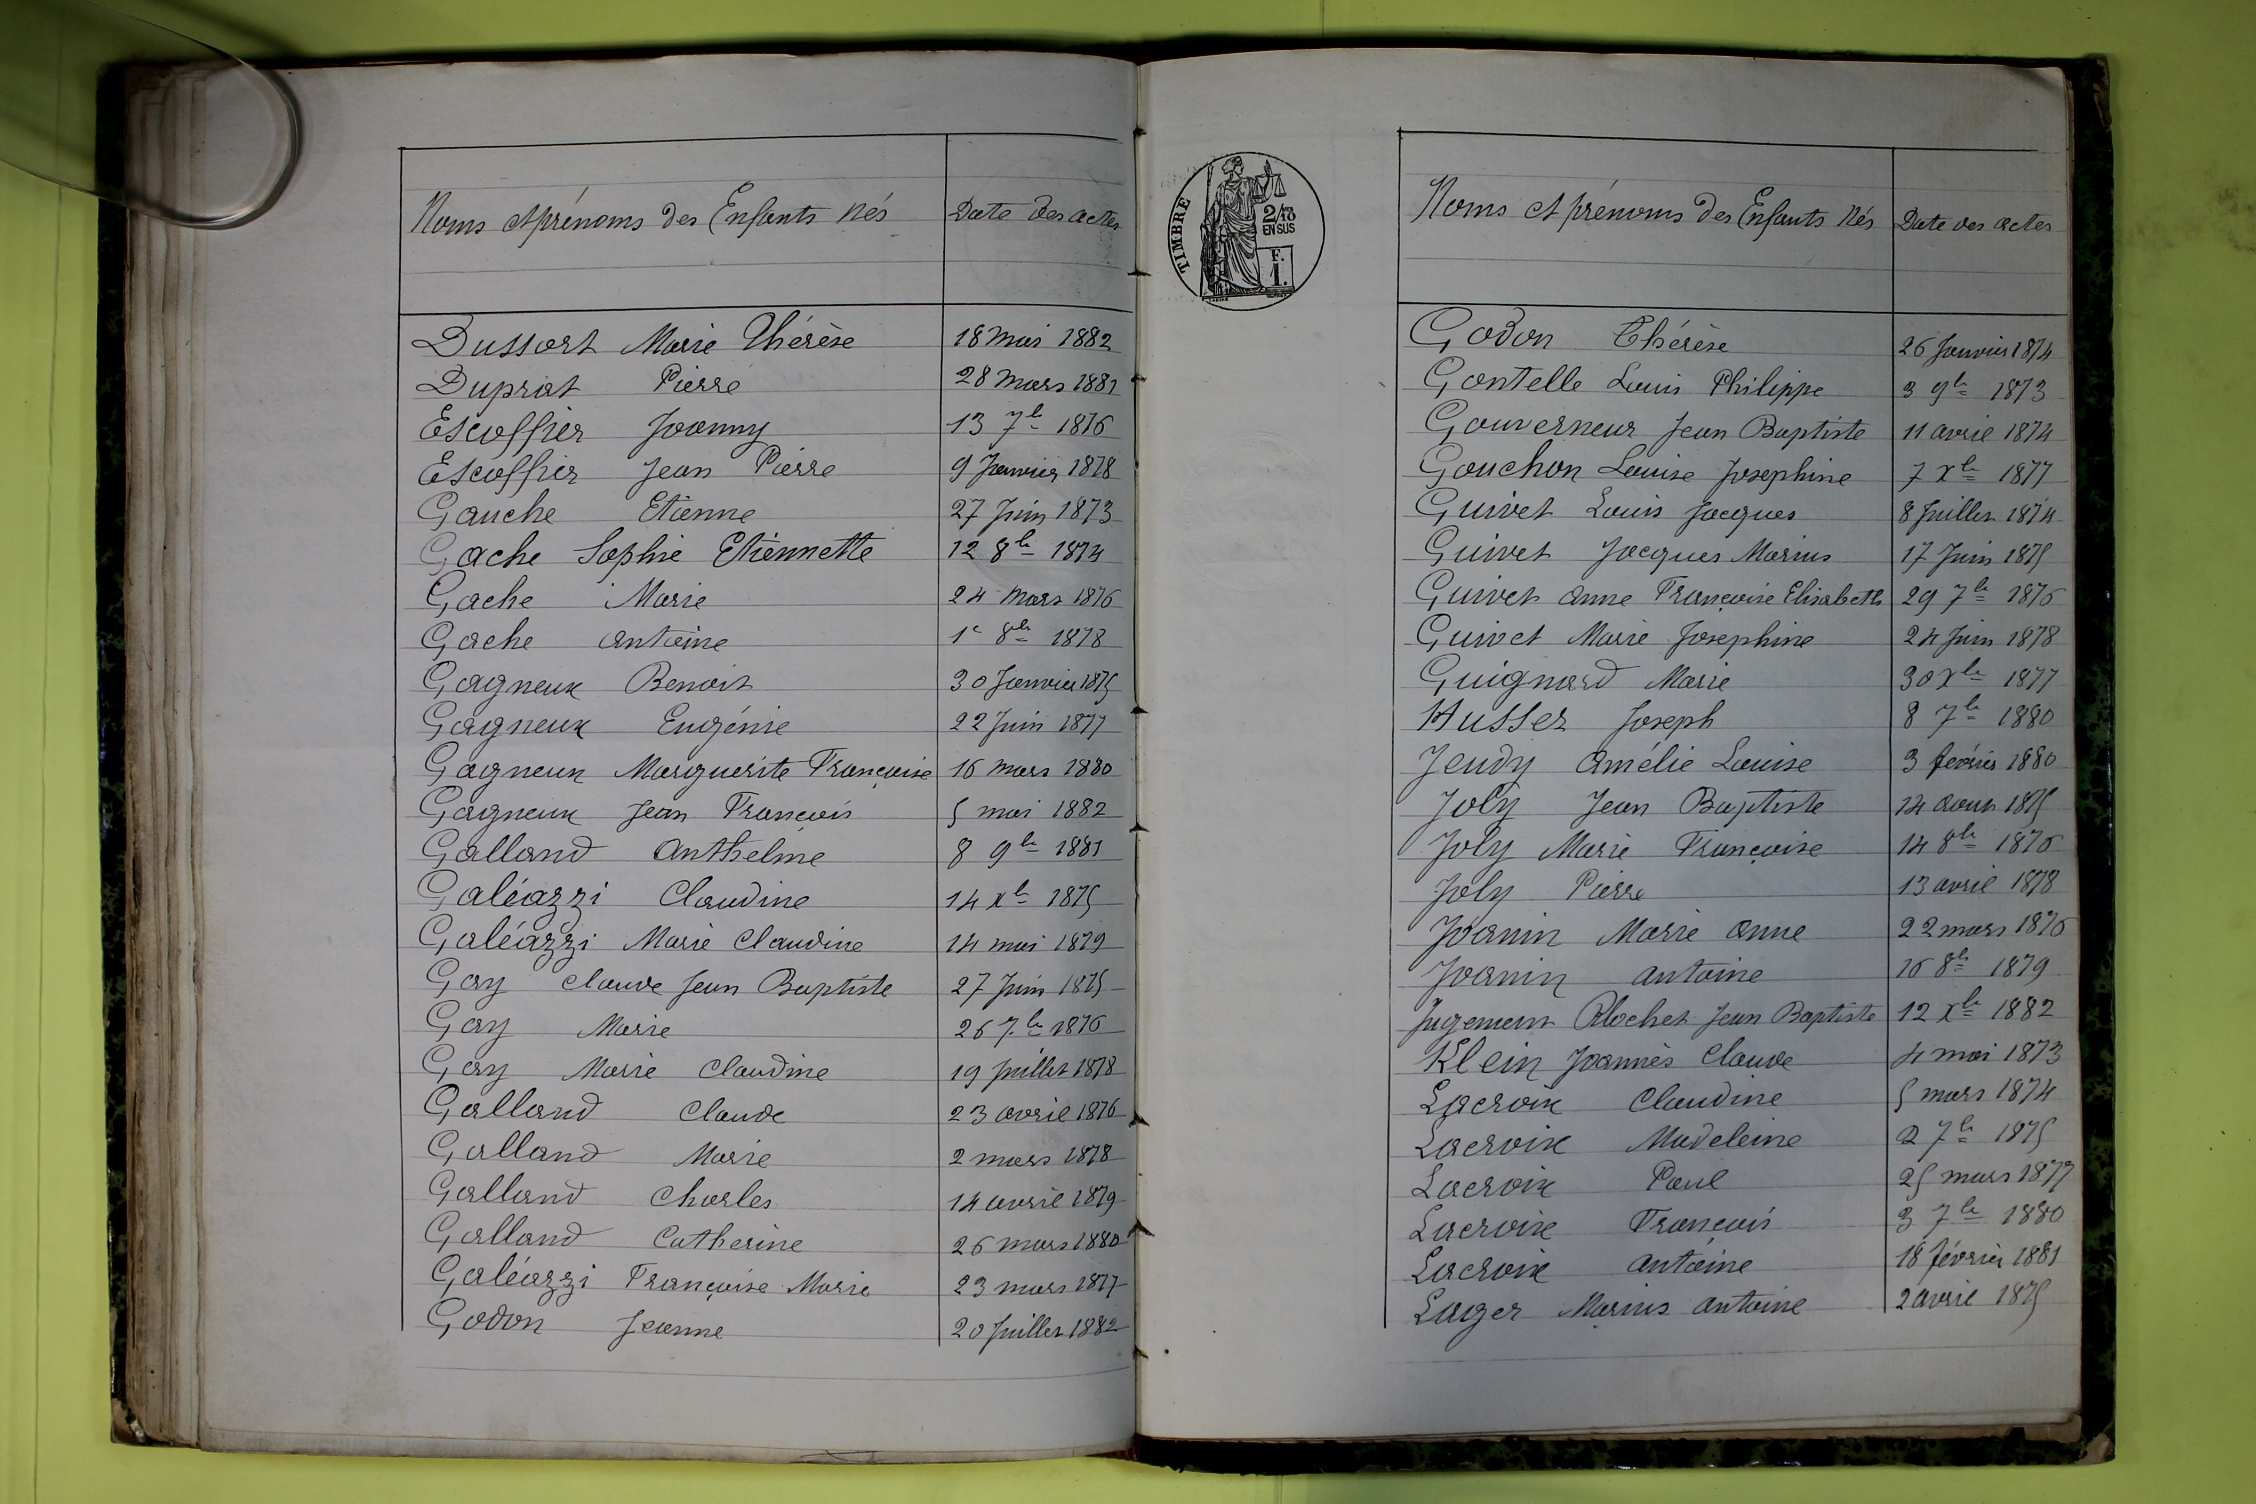 Noms et prénoms des Enfants Nés Date des actes
Dussort Marie Thérèse 18 mai 1882
Duprat Pierre 28 mars 1881
Escoffier Joanny 13 7bre 1876
Escoffier Jean Pierre 9 Janvier 1878
Gauche Etienne 27 Juin 1873
Gache Sophie Etiennette 12 8bre 1874
Gache Marie 24 mars 1876
Gache antoine 1er 8bre 1878
Gagneux Benoit 30 Janvier 1875
Gagneux Eugénie 22 Juin 1877
Gagneux Marguerite Françoise 16 mars 1880
Gagneux Jean François 5 mai 1882
Galland Anthelme 8 9bre 1881
Galéazzi Claudine 14 xbre 1875
Galéazzi Marie Claudine 14 mai 1879
Gay Claude Jean Baptiste 27 Juin 1875
Gay Marie 26 7bre 1876
Gay Marie Claudine 19 Juillet 1878
Galland Claude 23 avril 1876
Galland Marie 2 mars 1878
Galland Charles 14 avril 1879
Galland Catherine 26 mars 1880
Galéazzi Françoise Marie 23 mars 1877
Godon Jeanne 20 Juillet 1882
TIMBRE
2/10
EN SUS
F.
1.
Noms et prénoms des Enfants Nés Date des actes
Godon Thérèse 26 Janvier 1874
Gontelle Louis Philippe 3 9bre 1873
Gouverneur Jean Baptiste 11 avril 1874
Gouchon Louise Josephine 7 xbre 1877
Guivet Louis Jacques 8 Juillet 1874
Guivet Jacques Marius 17 Juin 1875
Guivet anne Françoise Elisabeth 29 7bre 1876
Guivet Marie Josephine 24 Juin 1878
Guignard Marie 30 xbre 1877
Husser Joseph 8 7bre 1880
Jeudy Amélie Louise 3 février 1880
Joly Jean Baptiste 14 aout 1875
Joly Marie Françoise 14 8bre 1876
Joly Pierre 13 avril 1878
Joanin Marie Anne 22 mars 1876
Joanin antoine 16 8bre 1879
Jugement Blochet Jean Baptiste 12 xbre 1882
Klein Joannès Claude 4 mai 1873
Lacroix Claudine 5 mars 1874
Lacroix Madeleine 2 7bre 1875
Lacroix Paul 25 mars 1877
Lacroix François 3 7bre 1880
Lacroix Antoine 18 février 1881
Lager Marius Antoine 2 avril 1875